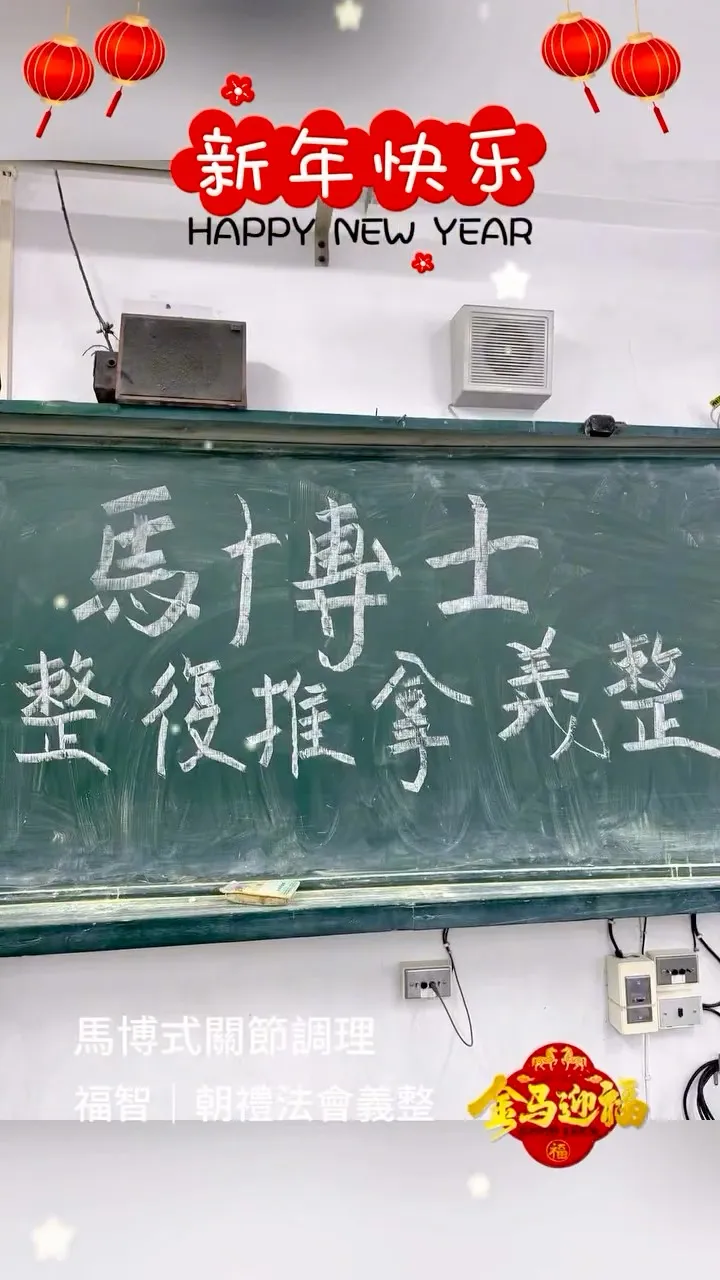 新年快乐
HAPPY NEW YEAR
馬博士
整復推拿義整
馬博式關節調理
福智｜朝禮法會義整
金马迎福
福